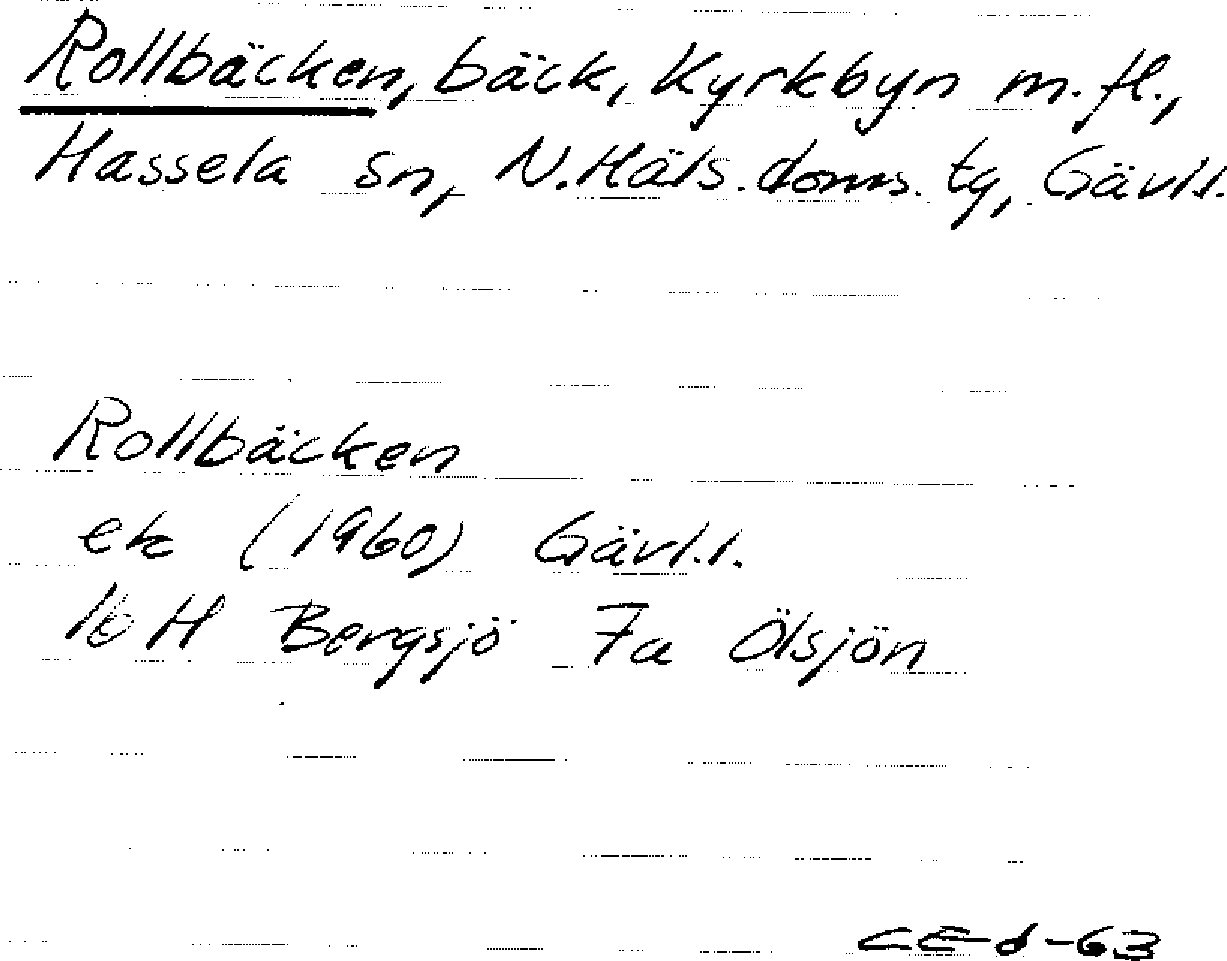 Rollbäcken, bäck, Kyrkbyn m.fl.,
Hassela sn, N.Häls.doms.tg, Gävl.l.
Rollbäcken
ek (1960) Gävl.l.
16 H Bergsjö 7a Ölsjön
CEd-63